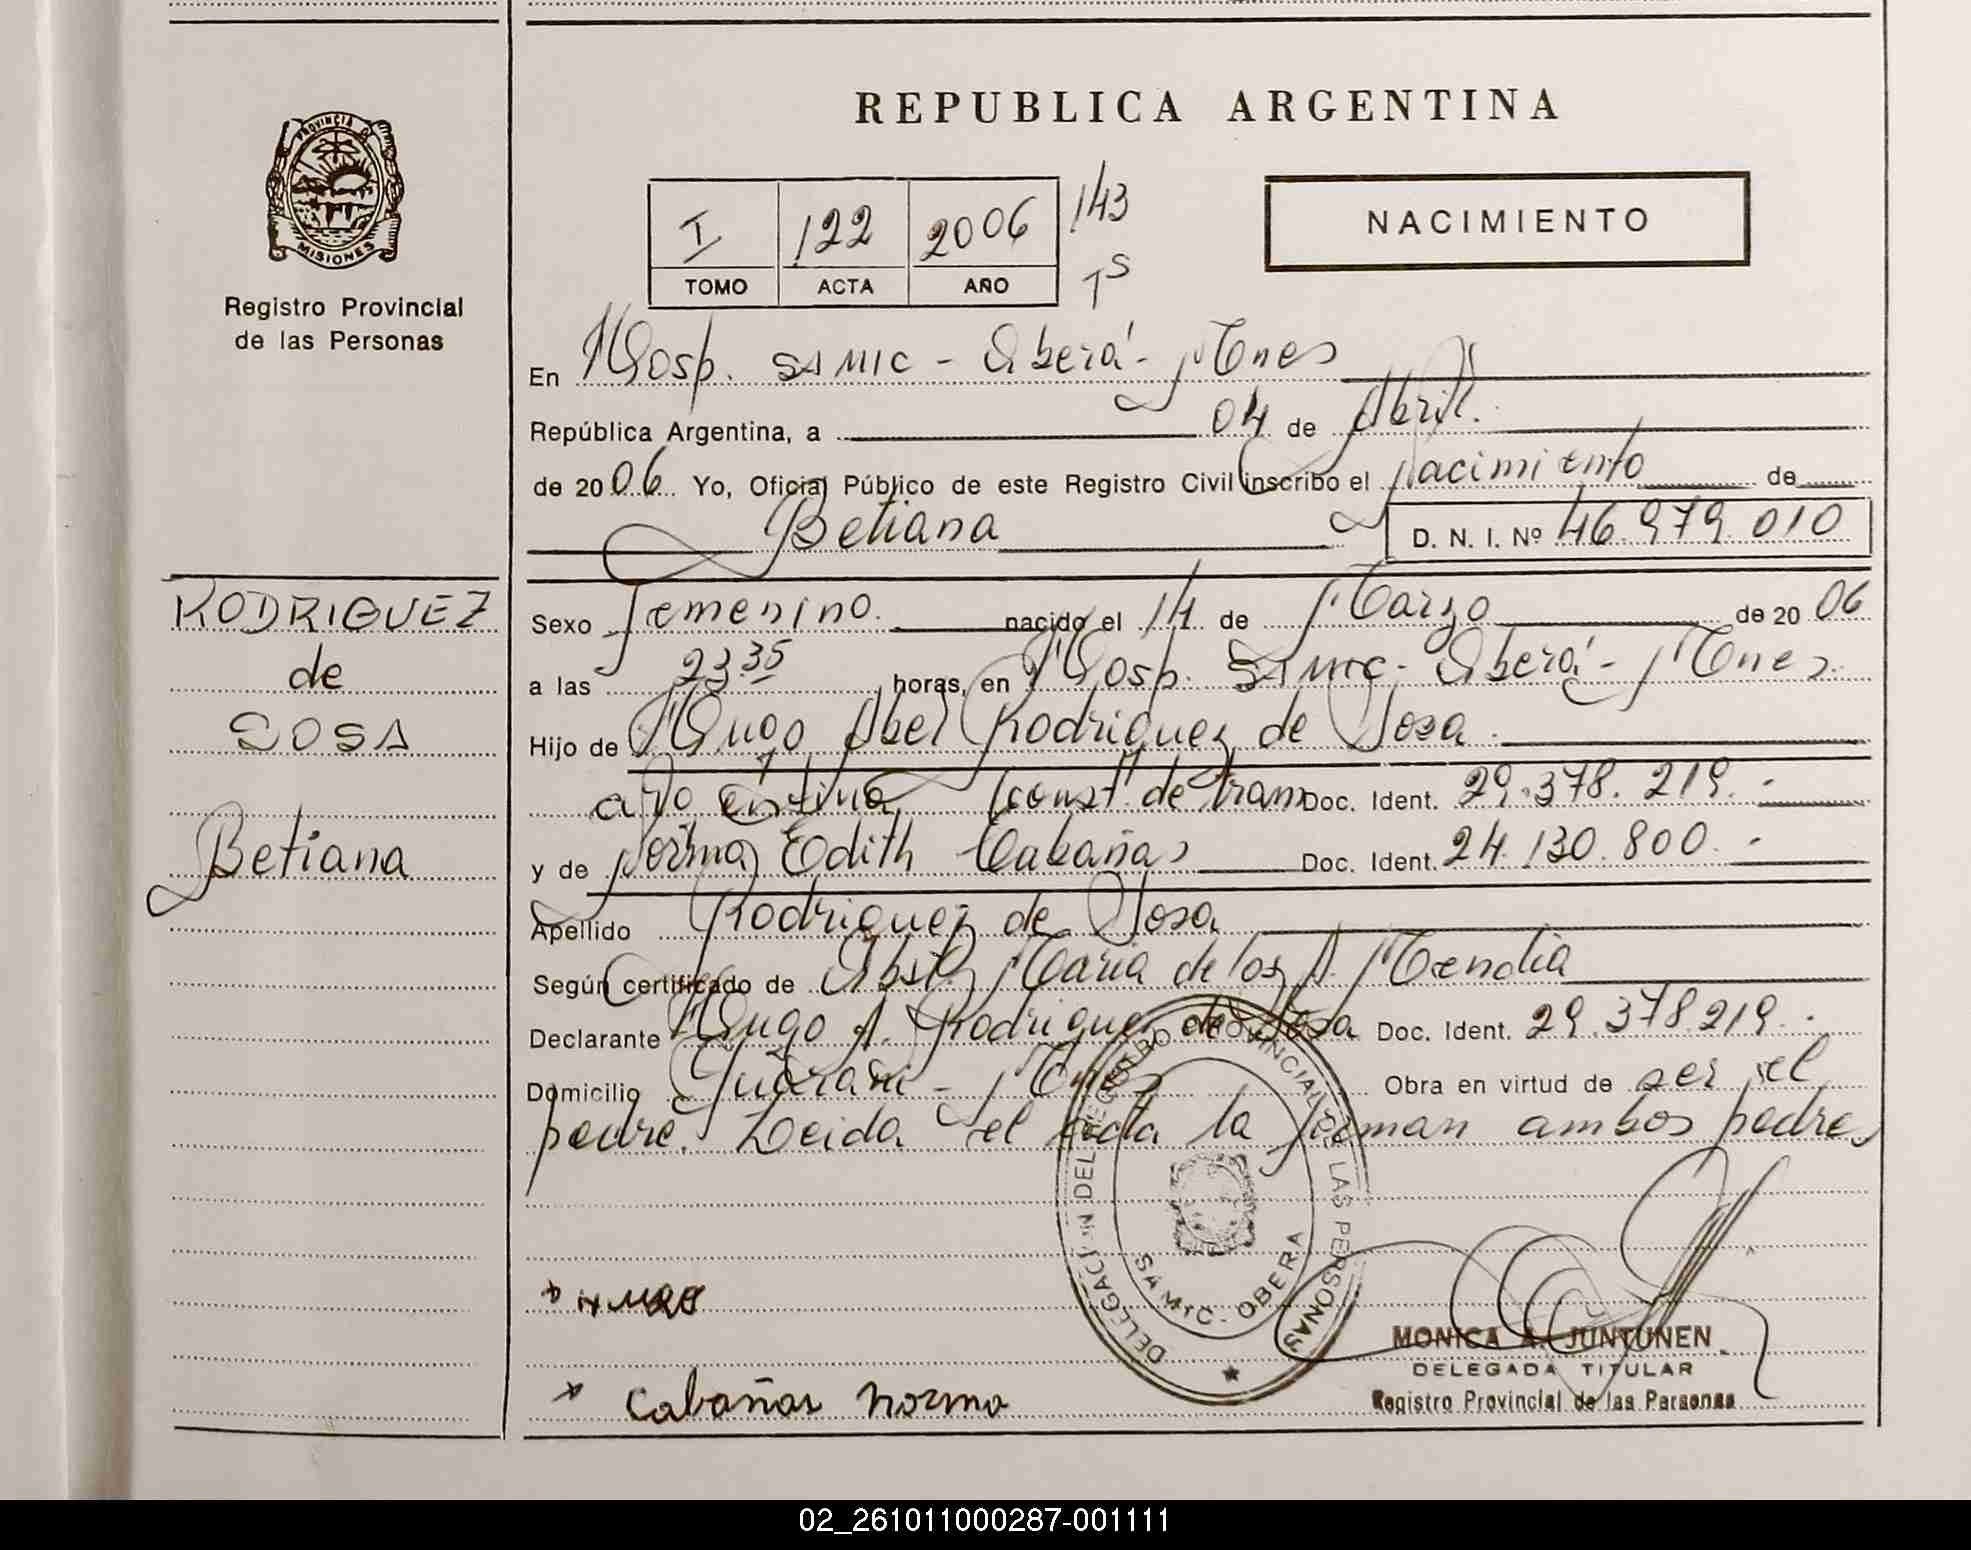 REPUBLICA ARGENTINA
PROVINCIA D
MISIONES
Registro Provincial
de las Personas
I 122 2006 143
TOMO ACTA AÑO
TS
NACIMIENTO
En Hosp. SAMIC - Oberá - Mnes
República Argentina, a 04 de Abril.
de 2006 Yo, Oficial Público de este Registro Civil inscribo el Nacimiento de
Betiana D. N. I. Nº 46.979.010
RODRIGUEZ
de
SOSA
Betiana
Sexo Femenino. nacido el 14 de Marzo de 2006
a las 23.35 horas, en Hosp. SAMIC - Oberá - Mnes.
Hijo de Hugo Abel Rodriguez de Sosa.
argentina (const. de tram Doc. Ident. 29.378.219.-
y de Norma Edith Cabañas Doc. Ident. 24.130.800.-
Apellido Rodriguez de Sosa
Según certificado de Obst. Maria de los A. Mendia
Declarante Hugo A. Rodriguez de Sosa Doc. Ident. 29.378.219.-
Domicilio Guarani - Mnes Obra en virtud de ser el
padre. Leida el acta la firman ambos padres
DELEGACION DEL REGISTRO PROVINCIAL DE LAS PERSONAS
SAMIC. OBERA
MONICA A. JUNTUNEN
DELEGADA TITULAR
Registro Provincial de las Personas
Cabañas Norma
02_261011000287-001111